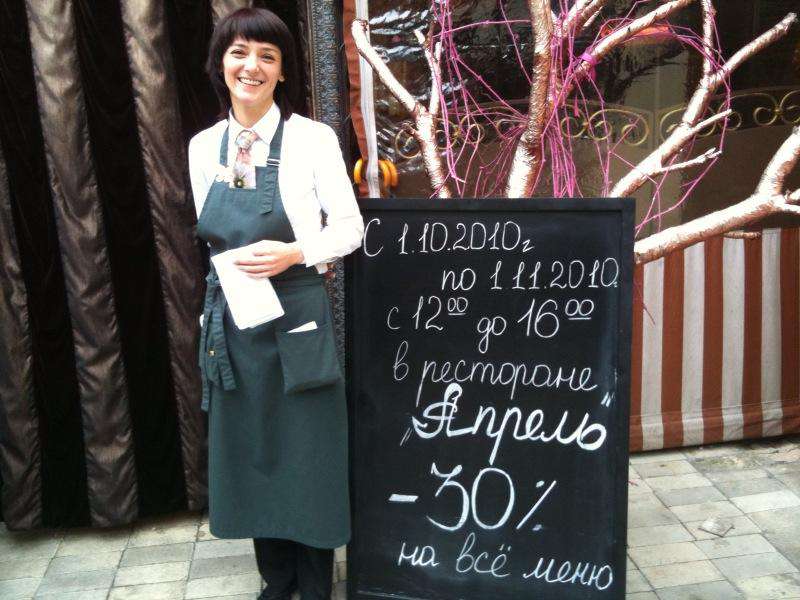 С 1.10.2010г
по 1 11.2010.
с 12⁰⁰ до 16⁰⁰
в ресторане
„Апрель"
-30%
на всё меню